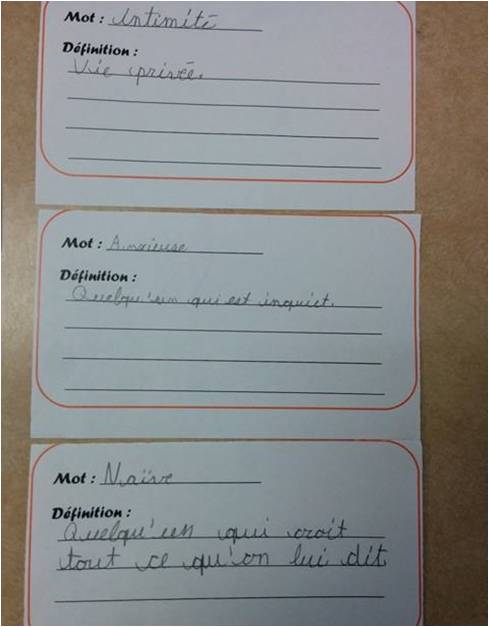 Mot : Intimité
Définition :
Vie privée.
Mot : Anxieuse
Définition :
Quelqu'un qui est inquiet.
Mot : Naïve
Définition :
Quelqu'un qui croit
tout ce qu'on lui dit.